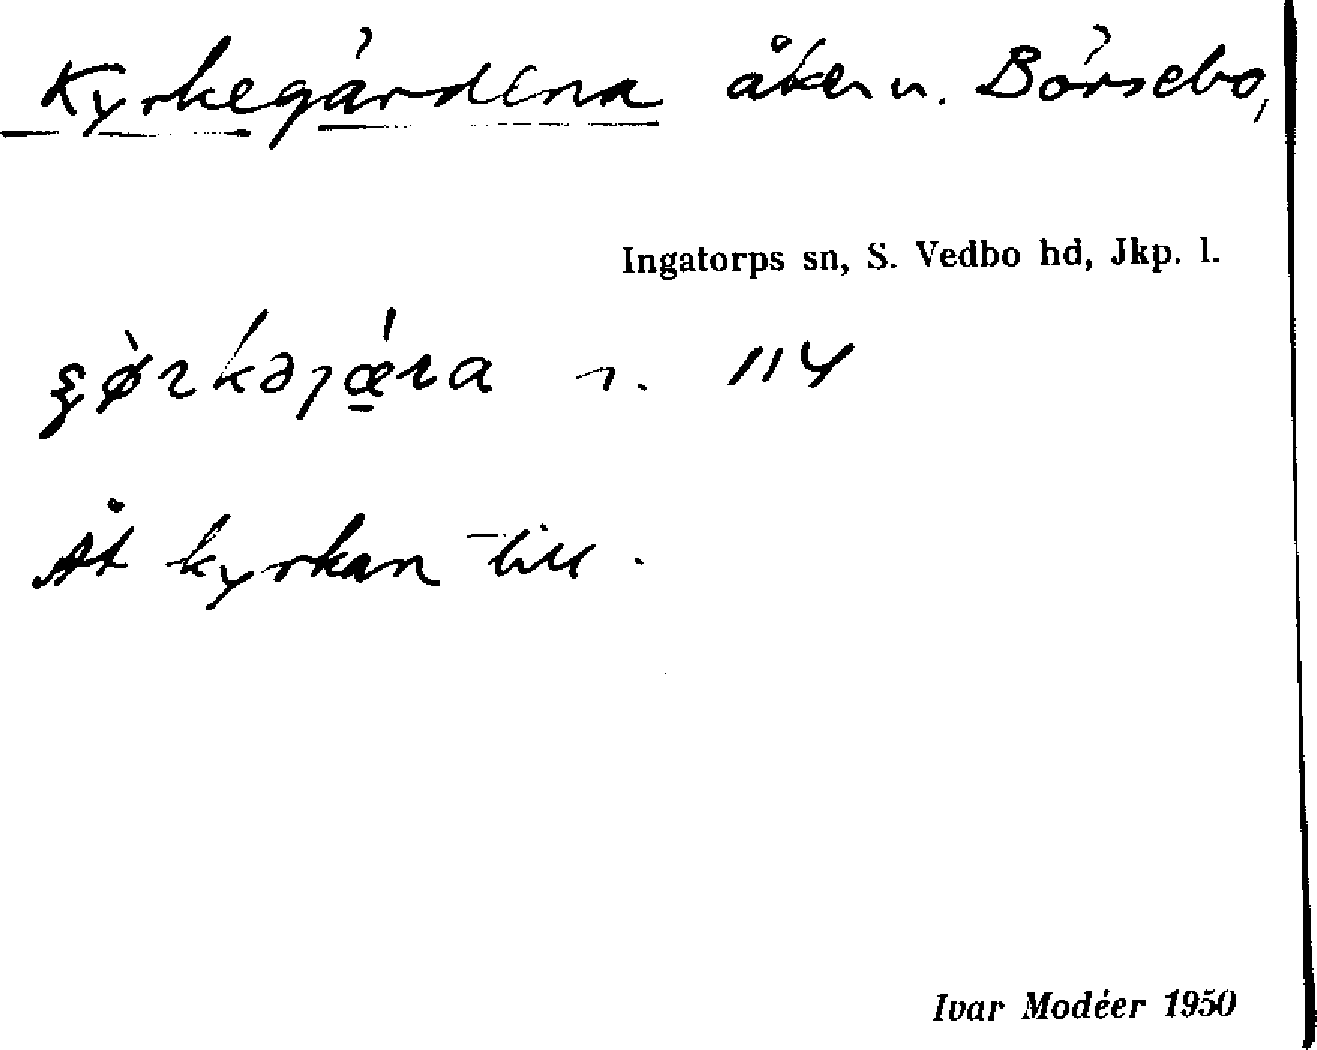 Kyrkegärdena åker n. Börsebo,
Ingatorps sn, S. Vedbo hd, Jkp. l.
n. 114
Åt kyrkan till.
Ivar Modéer 1950